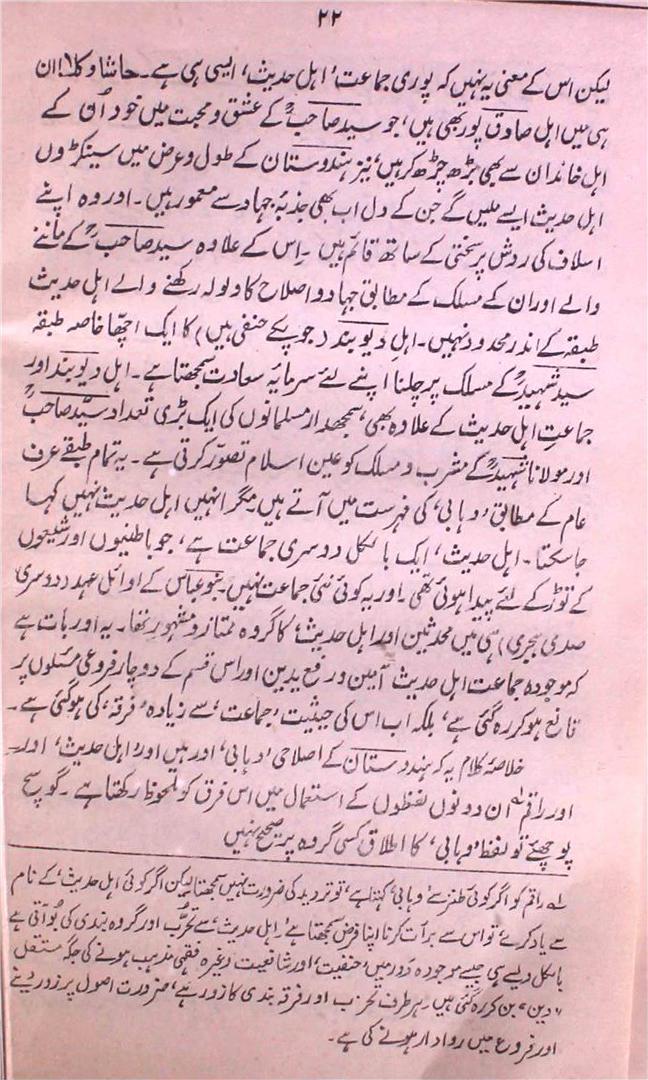 ۲۲
لیکن اس کے معنی یہ نہیں کہ پوری جماعت 'اہل حدیث' ایسی ہی ہے۔ حاشا و کلا! ان
ہی میں اہل صادق پور بھی ہیں، جو سید صاحبؒ کے عشق و محبت میں خود اُن کے
اہل خاندان سے بھی بڑھ چڑھ کر ہیں، نیز ہندوستان کے طول و عرض میں سینکڑوں
اہل حدیث ایسے ملیں گے جن کے دل اب بھی جذبۂ جہاد سے معمور ہیں۔ اور وہ اپنے
اسلاف کی روش پر سختی کے ساتھ قائم ہیں۔ اِس کے علاوہ سید صاحبؒ کے ماننے
والے اور ان کے مسلک کے مطابق جہاد و اصلاح کا ولولہ رکھنے والے اہل حدیث
طبقہ کے اندر محدود نہیں۔ اہلِ دیوبند (جو پکے حنفی ہیں) کا ایک اچھا خاصہ طبقہ
سید شہیدؒ کے مسلک پر چلنا اپنے لئے سرمایہ سعادت سمجھتا ہے۔ اہل دیوبند اور
جماعتِ اہل حدیث کے علاوہ بھی، سمجھدار مسلمانوں کی ایک بڑی تعداد سید صاحبؒ
اور مولانا شہیدؒ کے مشرب و مسلک کو عین اسلام تصوّر کرتی ہے۔ یہ تمام طبقے عرف
عام کے مطابق 'وہابی' کی فہرست میں آتے ہیں مگر انہیں اہل حدیث نہیں کہا
جا سکتا۔ اہل حدیث، ایک بالکل دوسری جماعت ہے، جو باطنیوں اور شیعوں
کے توڑ کے لئے پیدا ہوئی تھی۔ اور یہ کوئی نئی جماعت نہیں۔ بنو عباس کے اوائل عہد (دوسری
صدی ہجری) ہی میں محدثین اور اہل حدیث، کا گروہ ممتاز و مشہور تھا۔ یہ اور بات ہے
کہ موجودہ جماعت اہل حدیث آمین و رفع یدین اور اس قسم کے دو چار فروعی مسئلوں پر
قانع ہو کر رہ گئی ہے، بلکہ اب اس کی حیثیت 'جماعت' سے زیادہ 'فرقہ' کی ہو گئی ہے۔
خلاصۂ کلام یہ کہ ہندوستان کے اصلاحی 'وہابی' اور ہیں اور 'اہل حدیث' اور۔
اور راقم لہ ان دونوں لفظوں کے استعمال میں اس فرق کو ملحوظ رکھتا ہے۔ گو سچ
پوچھئے تو لفظ 'وہابی' کا اطلاق کسی گروہ پر صحیح نہیں
لہ راقم کو اگر کوئی طنز سے 'وہابی' کہتا ہے، تو تردید کی ضرورت نہیں سمجھتا لیکن اگر کوئی اہل حدیث، کے نام
سے یاد کرے، تو اس سے برأت کرنا اپنا فرض سمجھتا ہے، اہل حدیث، سے تحزُّب اور گروہ بندی کی بُو آتی ہے
بالکل ویسے ہی جیسے موجودہ دَور میں 'حنفیت' اور شافعیت وغیرہ فقہی مذہب ہونے کی جگہ مستقل
"دین" بن کر رہ گئی ہیں۔ ہر طرف تحزب اور فرقہ بندی کا زور ہے، ضرورت اصول پر زور دینے
اور فروع میں روادار ہونے کی ہے۔